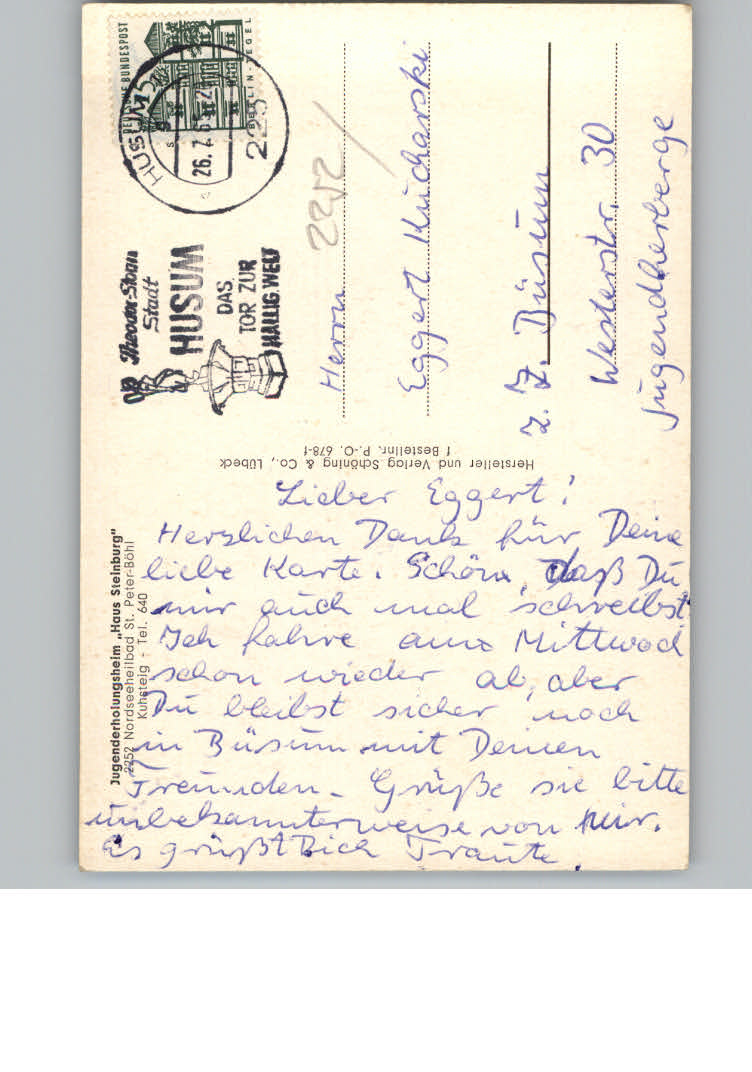 DEUTSCHE BUNDESPOST
BERLIN TEGEL
HUSUM
26. 7. 6
225
Theodor-Storm
Stadt
HUSUM
DAS
TOR ZUR
HALLIG-WELT
2252
Herrn
Eggert Kucharski
z. Z. Büsum
Westerstr. 30
Jugendherberge
Hersteller und Verlag Schöning & Co., Lübeck
f Bestellnr. P.-O. 678-f
Jugenderholungsheim „Haus Steinburg"
2252 Nordseeheilbad St. Peter-Böhl
Kuhsteig - Tel. 640
Lieber Eggert!
Herzlichen Dank für Deine
liebe Karte. Schön, daß Du
mir auch mal schreibst.
Ich fahre am Mittwoch
schon wieder ab, aber
Du bleibst sicher noch
in Büsum mit Deinen
Freunden. Grüße sie bitte
unbekannterweise von mir.
Es grüßt Dich Traute.